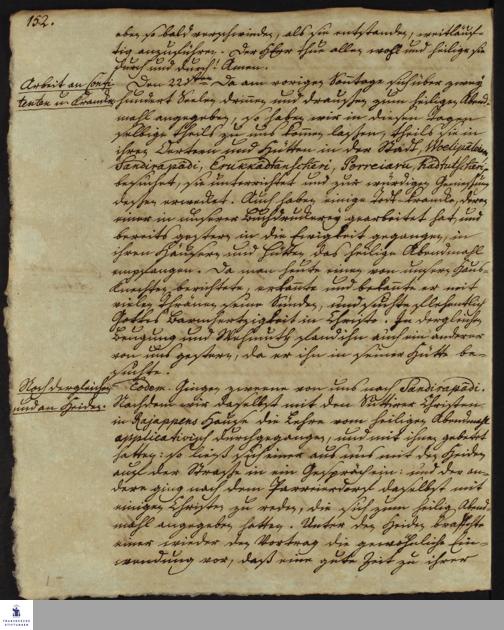 152.
eben so bald verschwinden, als sie entstanden, weitläuf-
tig anzuführen. Der HErr thue allen wohl und heilige sie
durch und durch! Amen.
Arbeit an
tenten u. Krancken
Den 22sten Da am vorigen Sontage sich über zwey
hundert Seelen drinnen und draussen zum heiligen Abend-
mahl angegeben, so haben wir in diesen Tagen
selbige theils zu uns kommen lassen, theils sie in
ihren Oertern und Hütten in der Stadt,
Sandirapadi, Erukkadtantscheri, Porreiaru, Kadtutscheri
besuchet, sie unterrichtet und zur würdigen Geniessung
dessen erwecket. Auch haben einige Todt-krancke, deren
einer in unsrer Buchdruckerey gearbeitet hat, und
bereits gestern in die Ewigkeit gegangen, in
ihren Häusern und Hütten das heilige Abendmahl
empfangen. Da man heute einen von unsern Hauß-
Knechten berichtete, erkannte und bekannte er mit
vielen Thränen seine Sünden, und suchte
Gottes Barmhertzigkeit in Christo. In dergleichen
Beugung und Wehmuth fand ihn auch ein anderer
von uns gestern, da er ihn in seiner Hütte be-
suchte.
Noch dergleichen
und an Heiden.
Eodem. Gingen zweene von uns nach Sandirapadi.
Nachdem wir daselbst mit den Suttirer Christen
in Rajappens Hause die Lehre vom heiligen Abendmahl
applicativisch durchgegangen, und mit ihnen gebetet
hatten: so ließ sich einer aus uns mit den Heiden
auf der Strasse in ein Gespräch ein: und der an-
dere ging nach dem Parreierdorf daselbst mit
einigen Christen zu reden, die sich zum heilig. Abend-
mahl angegeben hatten. Unter den Heiden brachte
einer wieder den Vortrag die gewöhnliche Ein-
wendung vor, daß eine gute Zeit zu ihrer
FRANCKESCHE
STIFTUNGEN